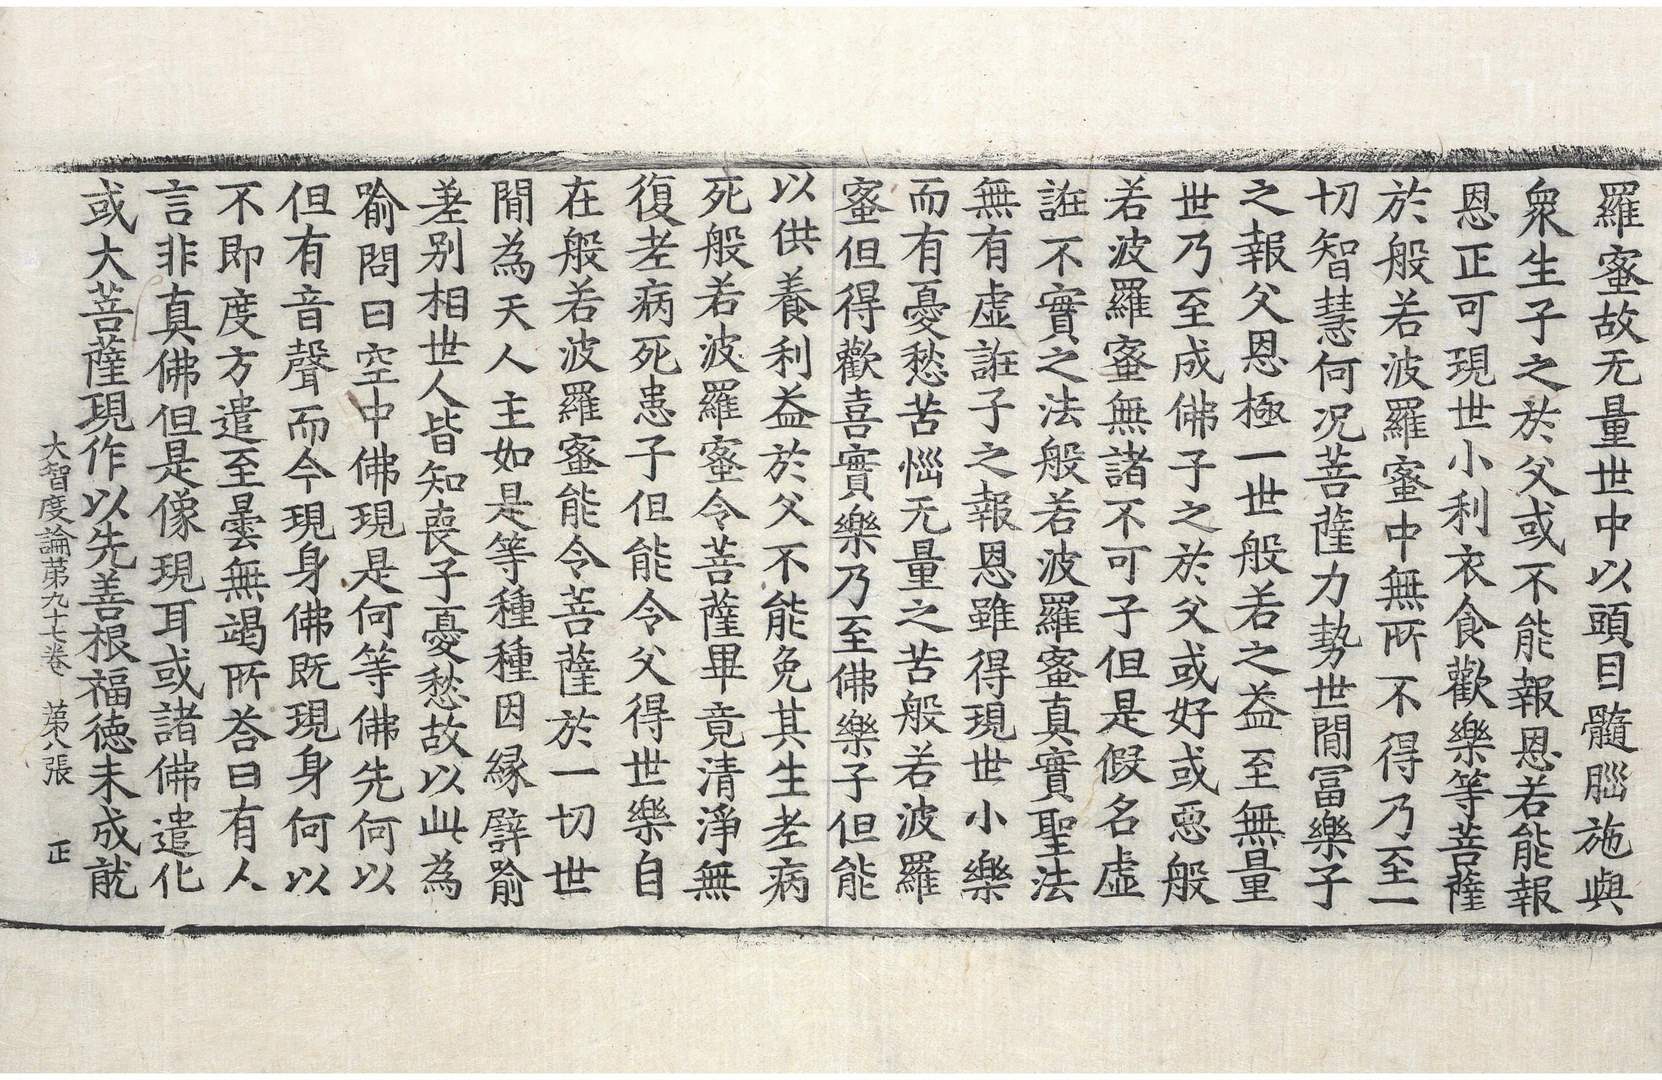 羅蜜故无量世中以頭目髓腦施與
衆生子之於父或不能報恩若能報
恩正可現世小利衣食歡樂等菩薩
於般若波羅蜜中無所不得乃至一
切智慧何況菩薩力勢世閒冨樂子
之報父恩極一世般若之益至無量
世乃至成佛子之於父或好或惡般
若波羅蜜無諸不可子但是假名虛
誑不實之法般若波羅蜜真實聖法
無有虛誑子之報恩雖得現世小樂
而有憂愁苦惱无量之苦般若波羅
蜜但得歡喜實樂乃至佛樂子但能
以供養利益於父不能免其生老病
死般若波羅蜜令菩薩畢竟清淨無
復老病死患子但能令父得世樂自
在般若波羅蜜能令菩薩於一切世
閒為天人主如是等種種因緣譬喻
差別相世人皆知喪子憂愁故以此為
喻問曰空中佛現是何等佛先何以
但有音聲而今現身佛既現身何以
不即度方遣至曇無竭所荅曰有人
言非真佛但是像現耳或諸佛遣化
或大菩薩現作以先善根福德未成就
大智度論第九十七卷 第八張 正